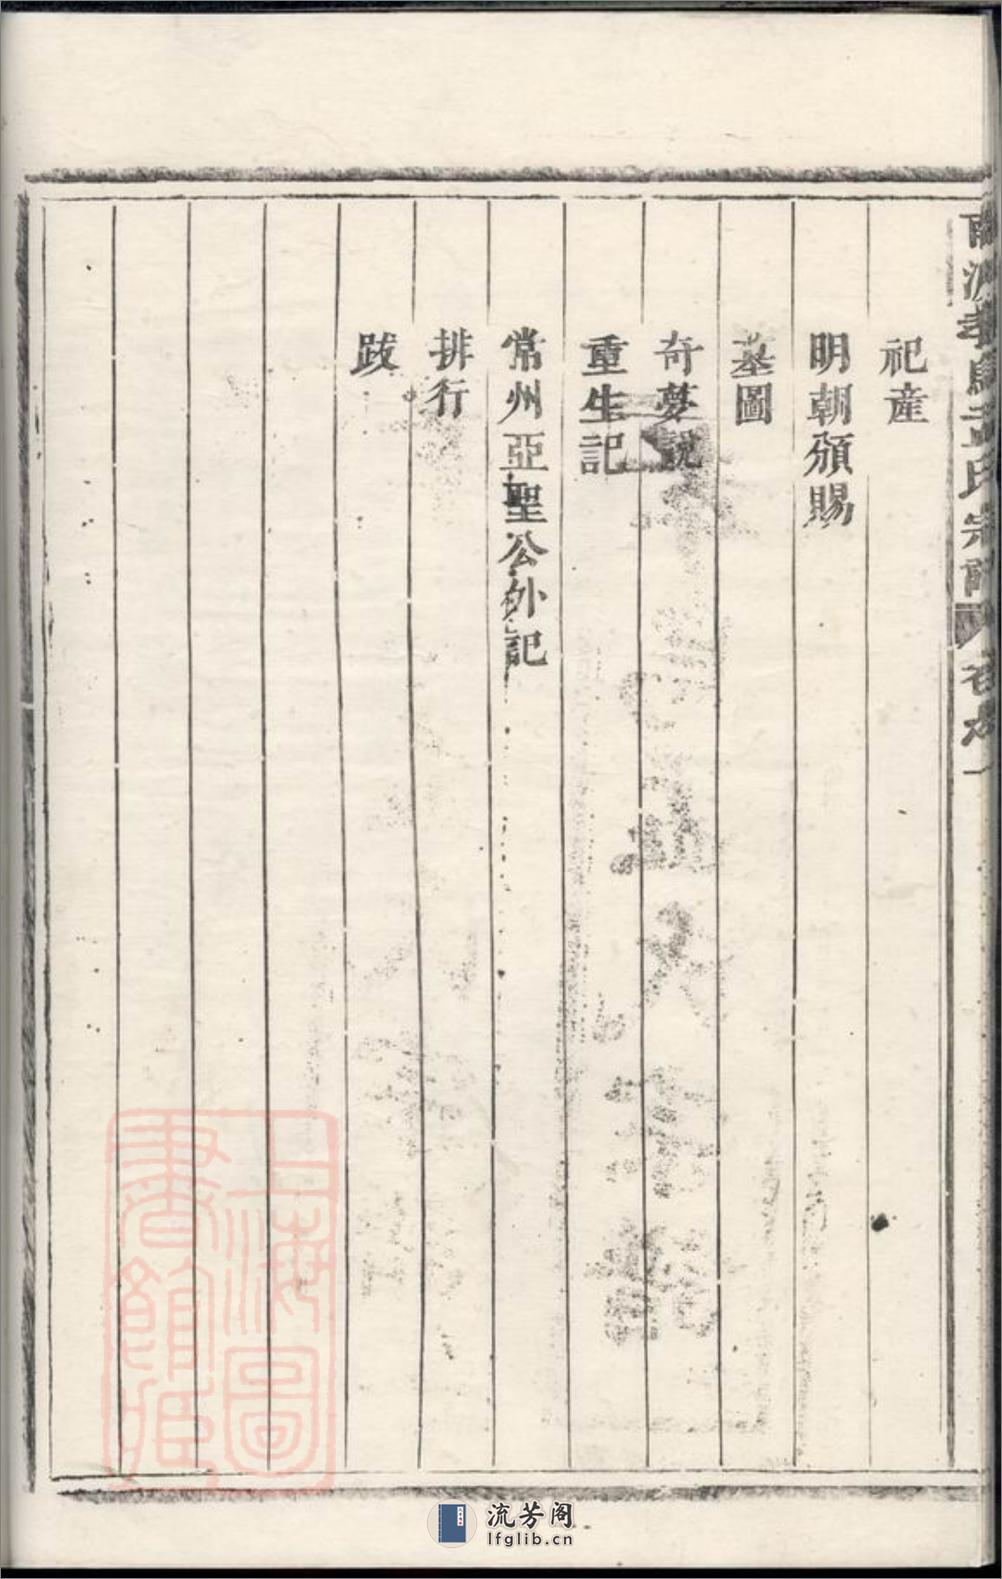 祀産
明朝頒賜
墓圖
奇夢説
重生記
常州亞聖公外記
排行
跋
上海圖
書館藏
流芳阁
lfglib.cn